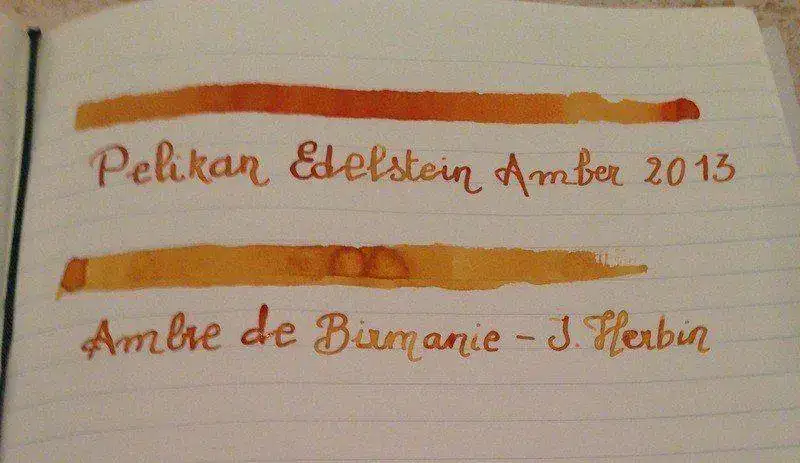 Pelikan Edelstein Amber 2013
Ambre de Birmanie - J. Herbin